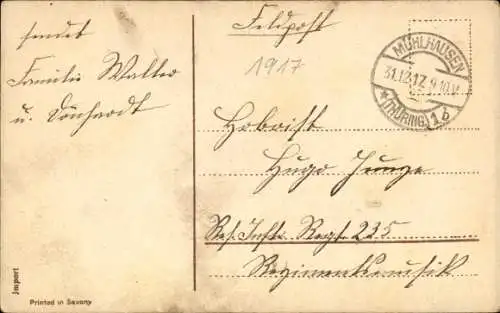 sendet
Familie Walter
u. Dönhardt
Feldpost
1917
MÜHLHAUSEN
31.12.17. 9-10V.
* (THÜRING.) 1 b
Hoboist
Hugo Junge
Res. Inft. Regt. 235
Regimentsmusik
Import
Printed in Saxony